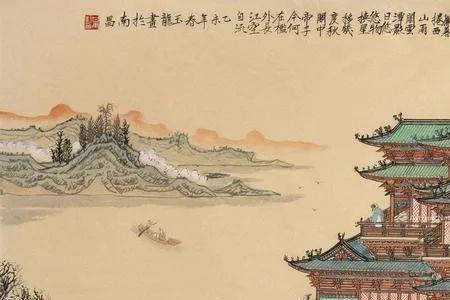 捲西
山雨
閒雲
潭影
日悠
悠物
換星
移幾
度秋
閣中
帝子
今何
在檻
外長
江空
自流
乙未年春玉龍畫於南昌